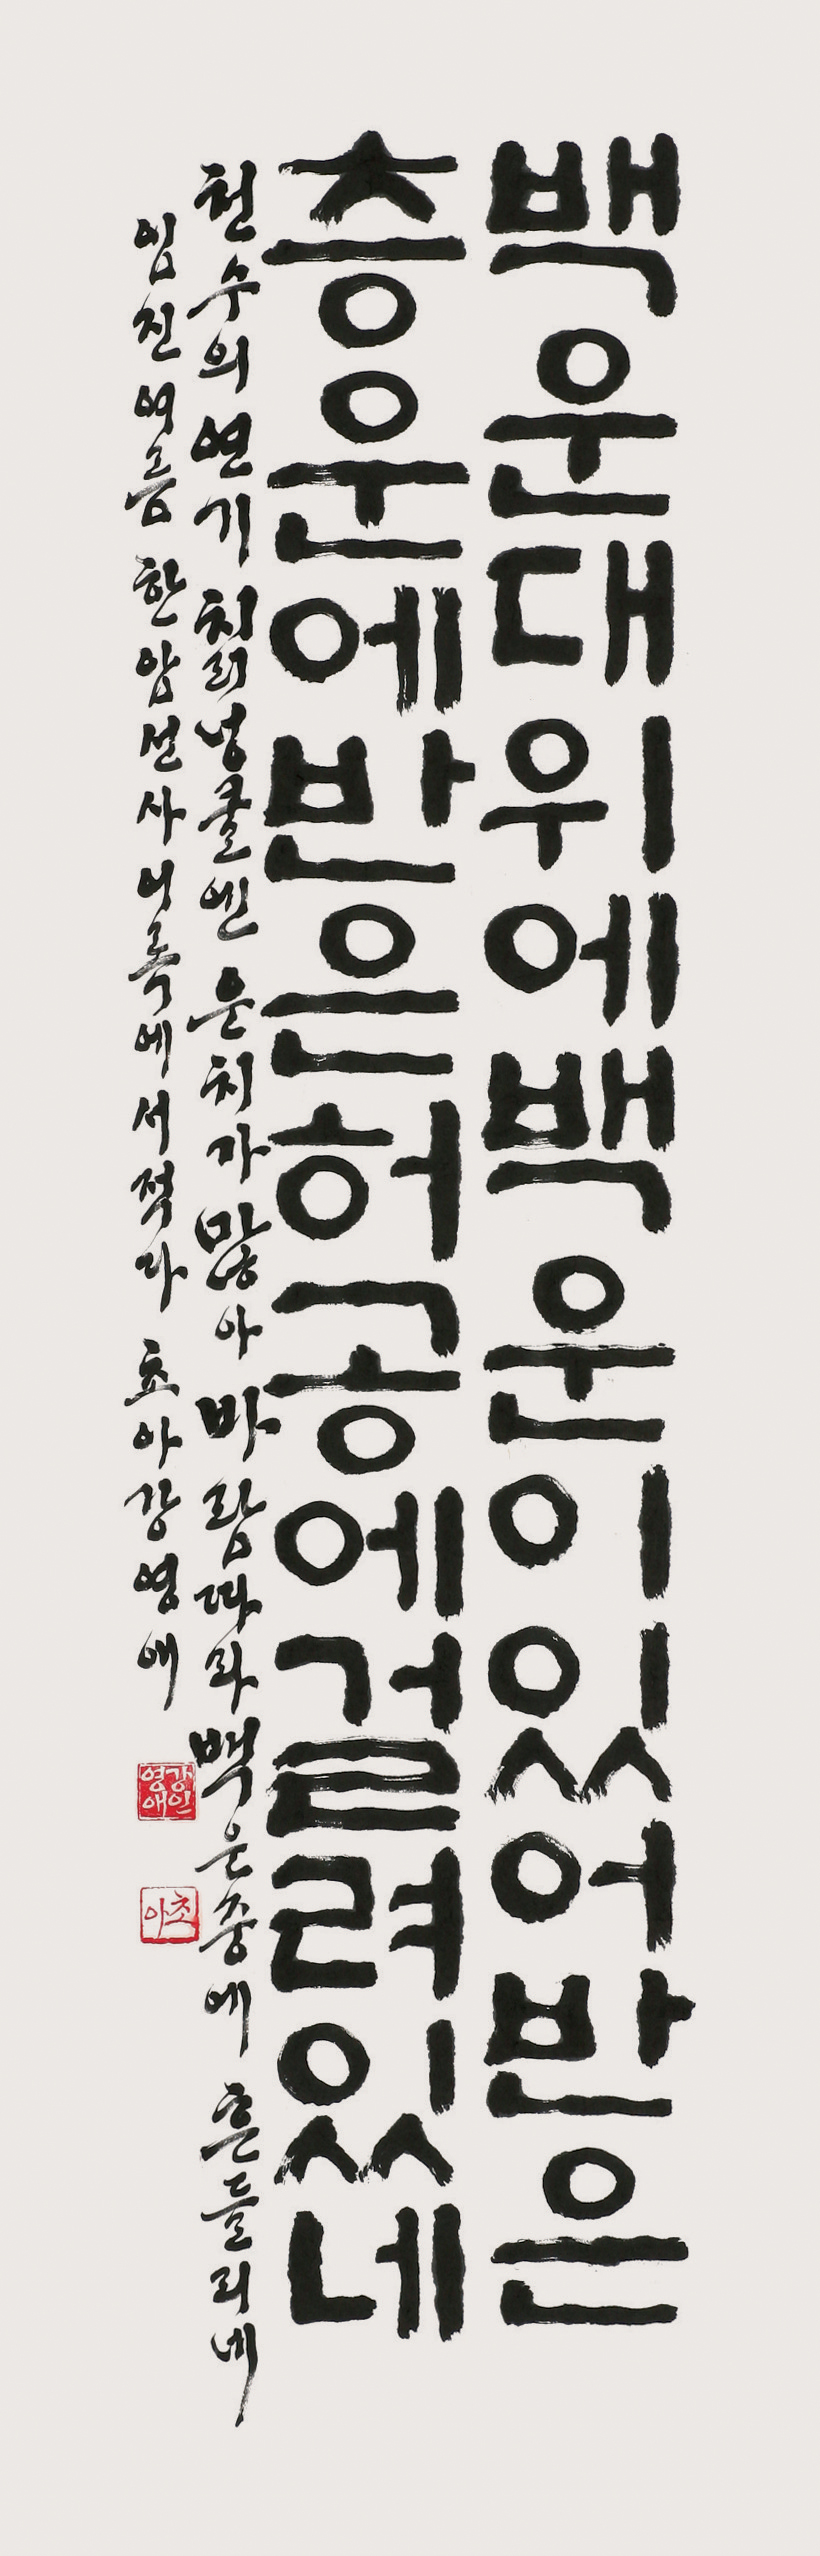 백운대위에백운이있어반은
층운에반은허공에걸려있네
천수의연기 칠리냉쿨엔 운치가많아 바람따라백운중에 흔들리네
임진여름 한암선사어록에서적다 초아강영애
강영애인
초아